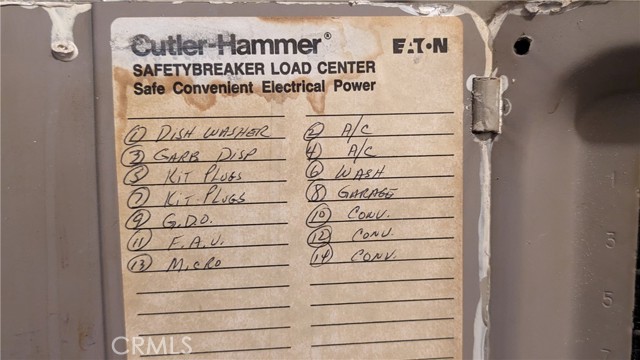 Cutler-Hammer® EATON
SAFETYBREAKER LOAD CENTER
Safe Convenient Electrical Power
1 DISH WASHER
3 GARB DISP
5 KIT PLUGS
7 KIT-PLUGS
9 G.D.O.
11 F.A.U.
13 MICRO
2 A/C
4 A/C
6 WASH
8 GARAGE
10 CONV.
12 CONV.
14 CONV.
1
3
5
CRMLS